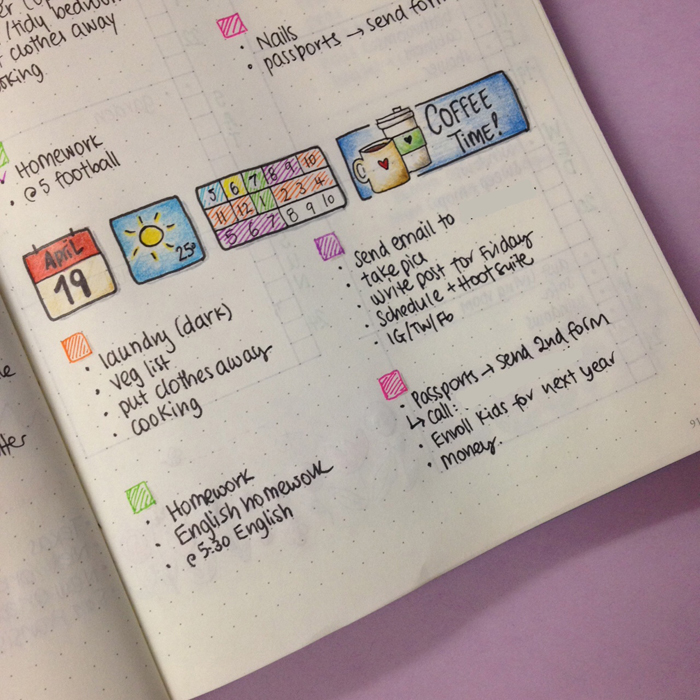 /tidy bedroom
clothes away
cooking
Nails
passports → send form
Homework
@ 5 football
April
19
25°
5 6 7 8 9 10
11 12 1 2 3 4
5 6 7 8 9 10
COFFEE
TIME!
laundry (dark)
veg list
put clothes away
cooking
send email to
take pics
write post for Friday
Schedule + Hootsuite
IG/TW/FB
Passports → send 2nd form
↳ call:
Enroll kids for next year
money.
Homework
English homework
@ 5:30 English
91